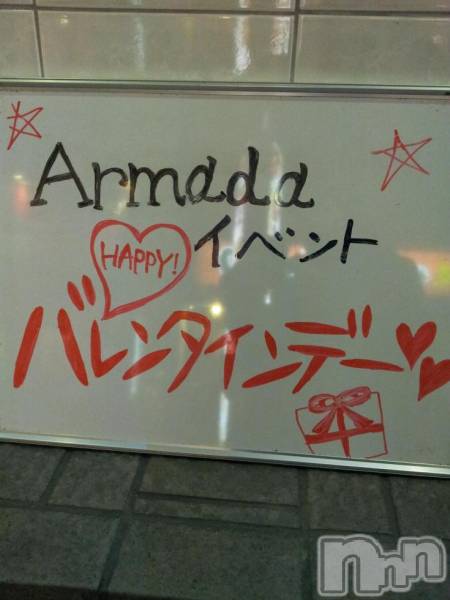 Armada
HAPPY! イベント
バレンタインデー
nnn